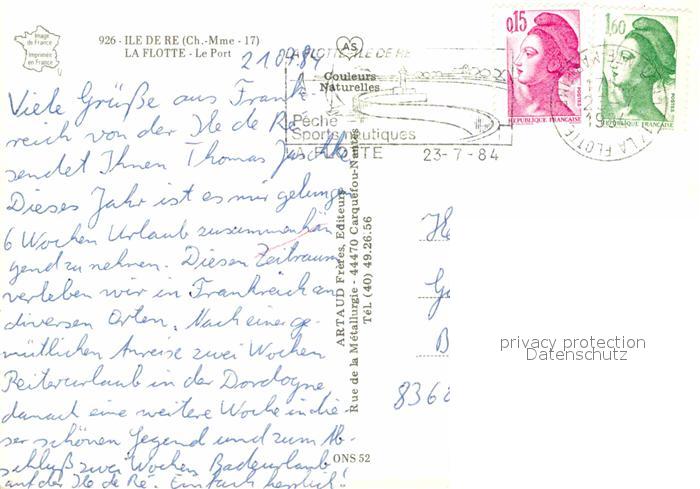 Image
de France
Imprimée
en France
926 - ILE DE RE (Ch.-Mme - 17)
LA FLOTTE - Le Port
AS
Couleurs
Naturelles
LA FLOTTE ILE DE RE
Pêche
Sports nautiques
LA FLOTTE 23-7-84
0,15
POSTES
REPUBLIQUE FRANÇAISE
1,60
POSTES
REPUBLIQUE FRANÇAISE
LA FLOTTE
21.07.84
Viele Grüße aus Frank-
reich von der Ile de Ré
sendet Ihnen Thomas
Dieses Jahr ist es mir gelungen
6 Wochen Urlaub zusammenhän
gend zu nehmen. Diesen Zeitraum
verleben wir in Frankreich an
diversen Orten. Nach einer ge-
mütlichen Anreise zwei Wochen
Reiterurlaub in der Dordogne
danach eine weitere Woche in die-
ser schönen Gegend und zum Ab-
schluß zwei Wochen Badeurlaub
auf der Ile de Ré. Einfach herrlich!
ARTAUD Frères, Editeurs
Rue de la Métallurgie - 44470 Carquefou-Nantes
Tél. (40) 49.26.56
ONS 52
He
G
B
8360
privacy protection
Datenschutz